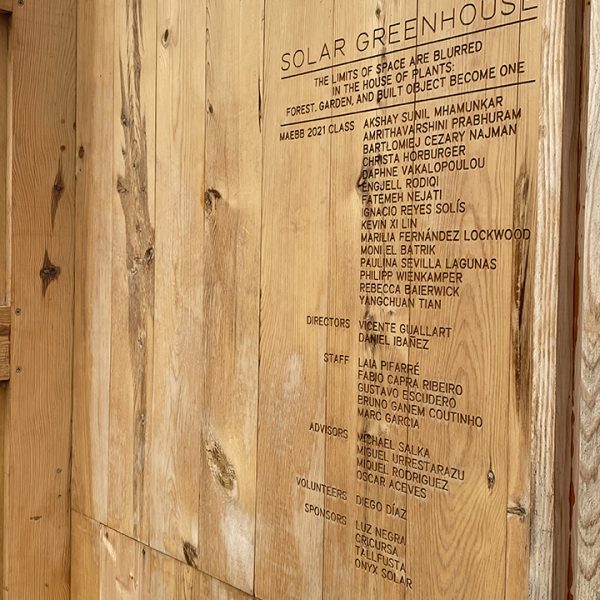 SOLAR GREENHOUSE
THE LIMITS OF SPACE ARE BLURRED
IN THE HOUSE OF PLANTS:
FOREST, GARDEN, AND BUILT OBJECT BECOME ONE
MAEBB 2021 CLASS AKSHAY SUNIL MHAMUNKAR
AMRITHAVARSHINI PRABHURAM
BARTŁOMIEJ CEZARY NAJMAN
CHRISTA HORBURGER
DAPHNE VAKALOPOULOU
ENGJELL RODIQI
FATEMEH NEJATI
IGNACIO REYES SOLÍS
KEVIN XI LIN
MARILIA FERNÁNDEZ LOCKWOOD
MONI EL BATRIK
PAULINA SEVILLA LAGUNAS
PHILIPP WIENKAMPER
REBECCA BAIERWICK
YANGCHUAN TIAN
DIRECTORS VICENTE GUALLART
DANIEL IBAÑEZ
STAFF LAIA PIFARRÉ
FABIO CAPRA RIBEIRO
GUSTAVO ESCUDERO
BRUNO GANEM COUTINHO
MARC GARCIA
ADVISORS MICHAEL SALKA
MIGUEL URRESTARAZU
MIQUEL RODRIGUEZ
OSCAR ACEVES
VOLUNTEERS DIEGO DÍAZ
SPONSORS LUZ NEGRA
CRICURSA
TALLFUSTA
ONYX SOLAR